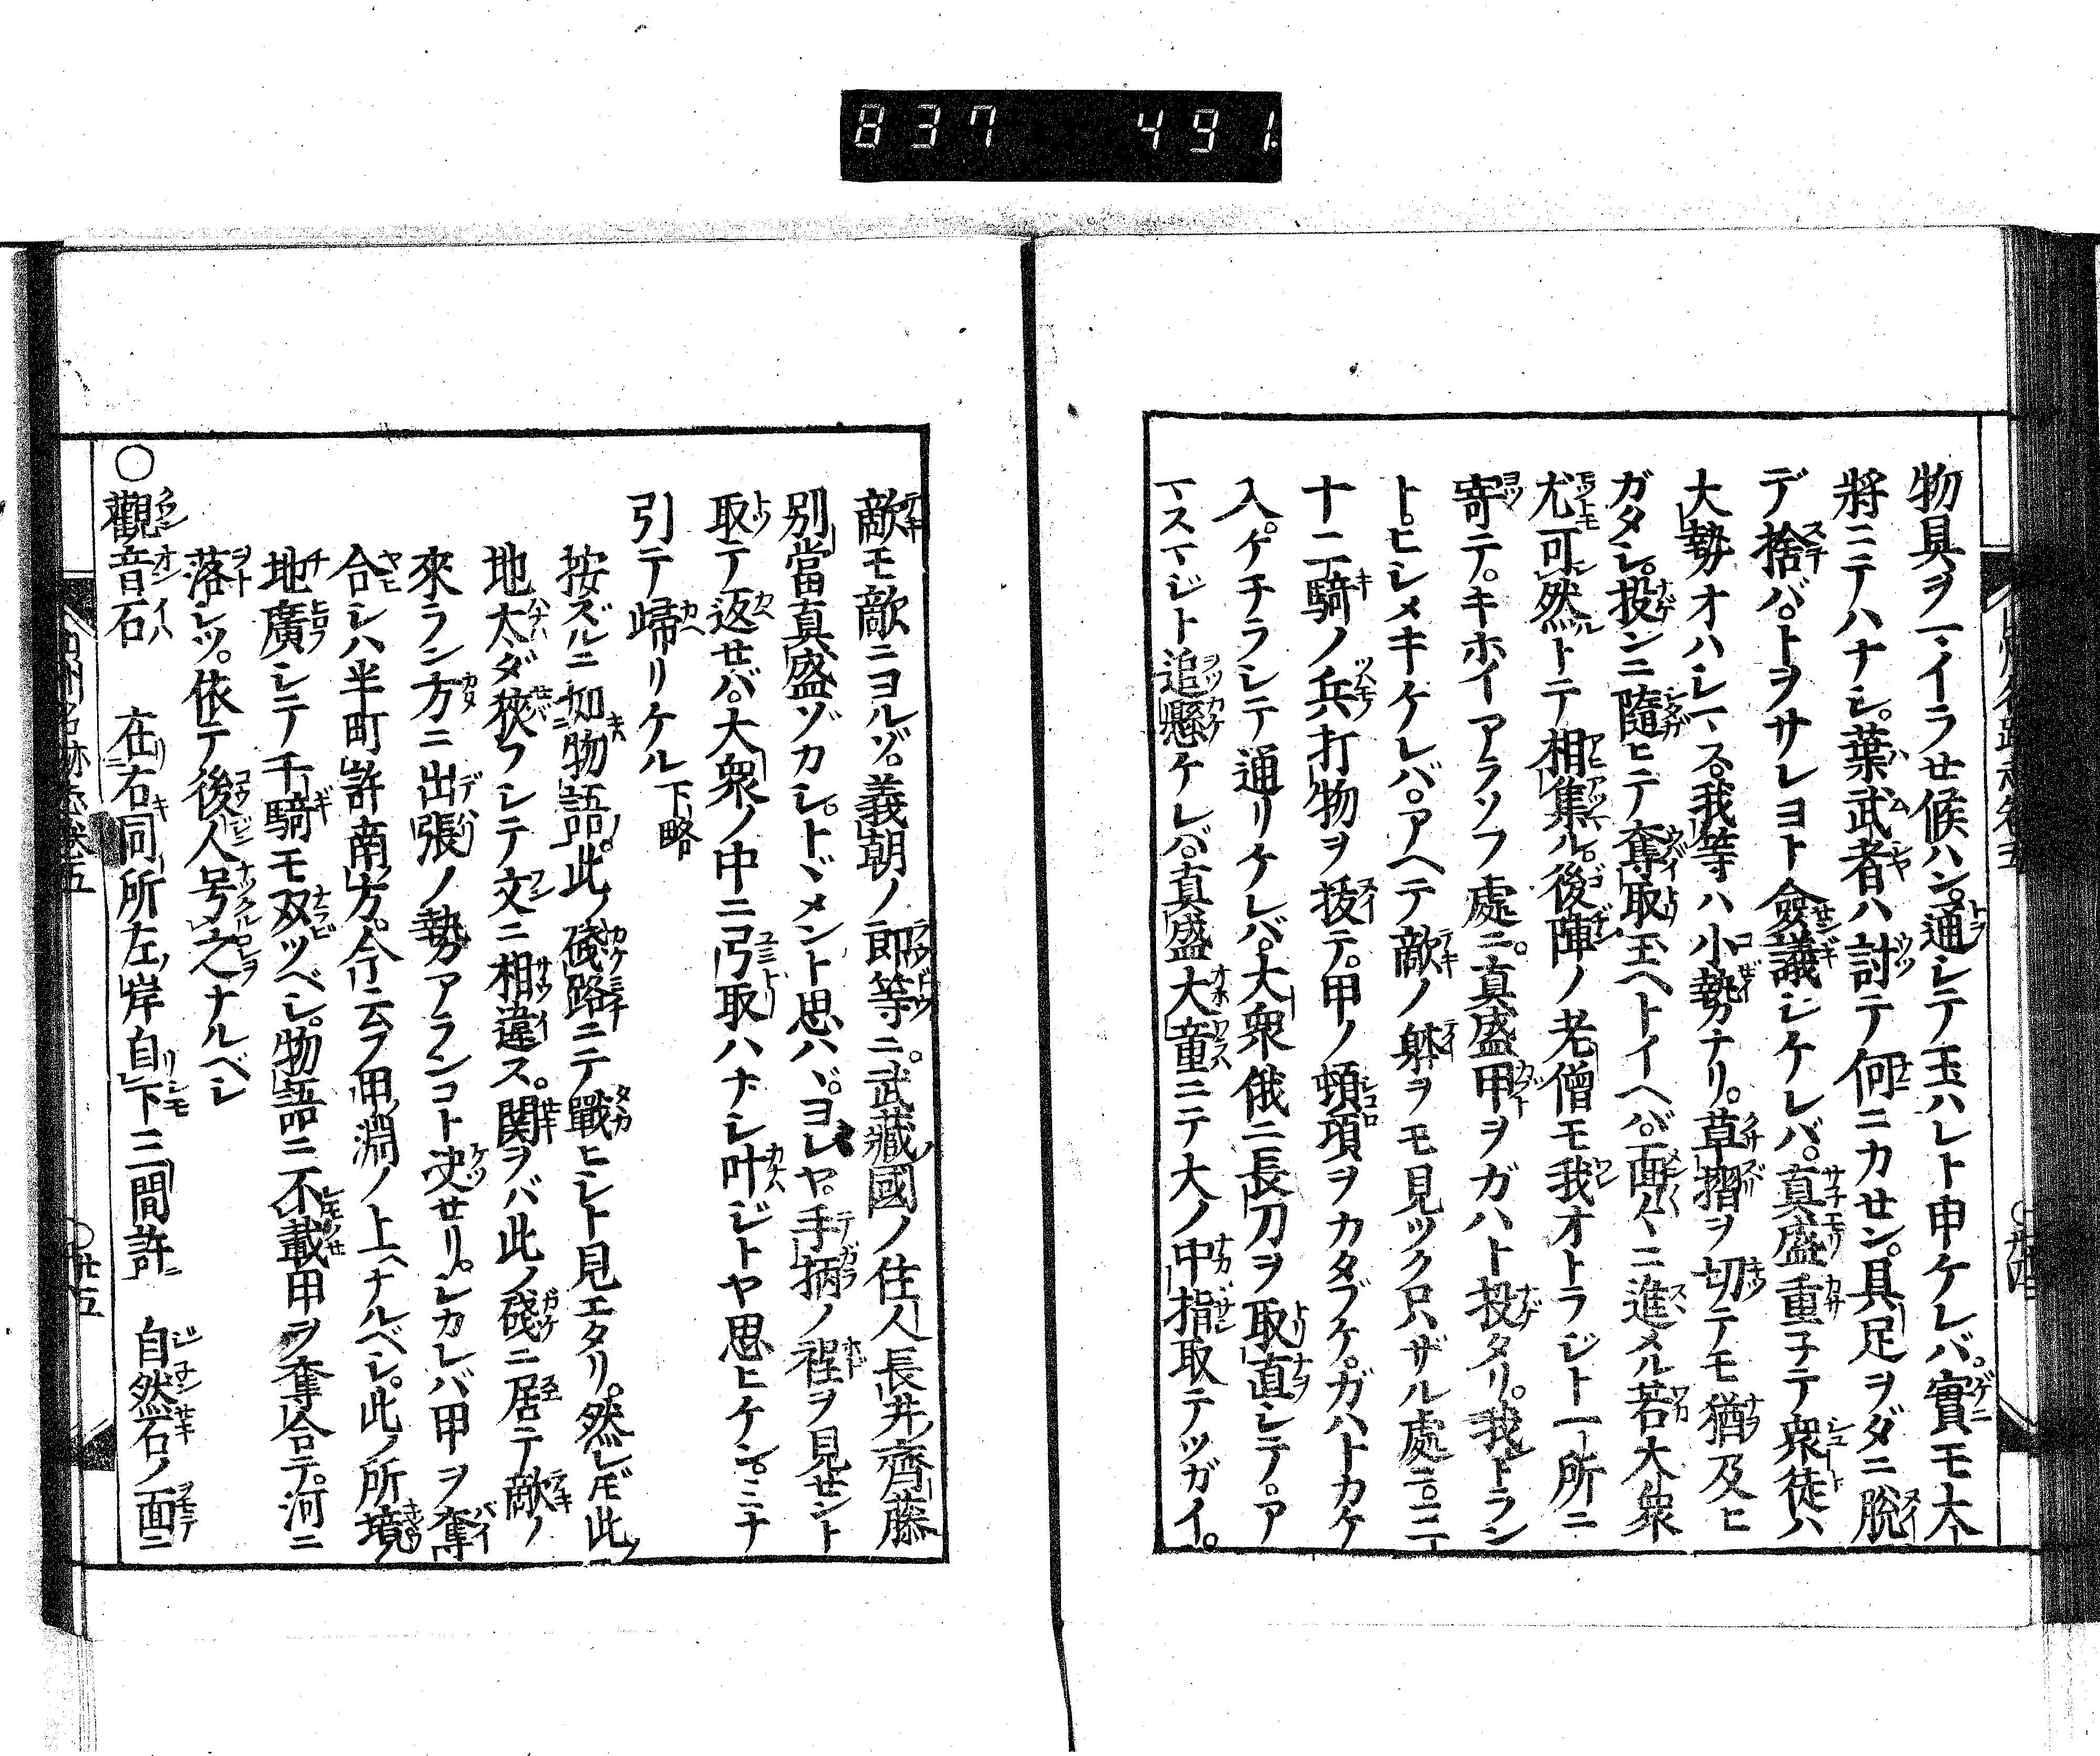 837 491
物具ヲマイラセ候ハン。通シテ玉ハレト申ケレバ。實モ大
將ニテハナシ。葉武者ハ討テ何ニカセン。具足ヲダニ脱
デ捨バ。トヲサレヨト僉議シケレバ。真盛重子テ衆徒ハ
大勢オハシマス。我等ハ小勢ナリ。草摺ヲ切テモ猶及ヒ
ガタシ。投ンニ隨ヒテ奪取玉ヘトイヘバ。面々ニ進メル若大衆
尤可然トテ相集ル。後陣ノ老僧モ我オトラジト一所ニ
寄テ。キホイアラソフ處ニ。真盛甲ヲガハト投タリ。我トラン
ト。ヒシメキケレバ。アヘテ敵ノ躰ヲモ見ツクロハザル處ニ。三
十二騎ノ兵打物ヲ拔テ。甲ノ頓項ヲカタブケ。ガハトカケ
入。ケチラシテ通リケレバ。大衆俄ニ長刀ヲ取直シテ。ア
マスマジト追懸ケレバ。真盛大童ニテ大ノ中指取テツガイ。
敵モ敵ニヨルゾ。義朝ノ郎等ニ。武藏國ノ住人長井齊藤
別當真盛ゾカシ。トヾメント思ハヾ。ヨレヤ。手柄ノ程ヲ見セント
取テ返セバ。大衆ノ中ニ弓取ハナシ叶ジトヤ思ヒケン。ミナ
引テ歸リケル下略
按ズルニ如物語。此ノ碊路ニテ戰ヒシト見エタリ。然レ𪜈此ノ
地太ダ狹フシテ文ニ相違ス。関ヲバ此ノ碊ニ居テ敵ノ
來ラン方ニ出張ノ勢アランコト决セリ。シカレバ甲ヲ奪
合シハ半町許南方。今云フ甲淵ノ上ヘナルベシ。此ノ所境
地廣シテ千騎モ双ツベシ。物語ニ不載甲ヲ奪合テ。河ニ
落シツ。依テ後人号之ナルベシ
○觀音石 在右同所左岸自下三間許 自然石ノ面ニ
名跡志卷五
○廿五